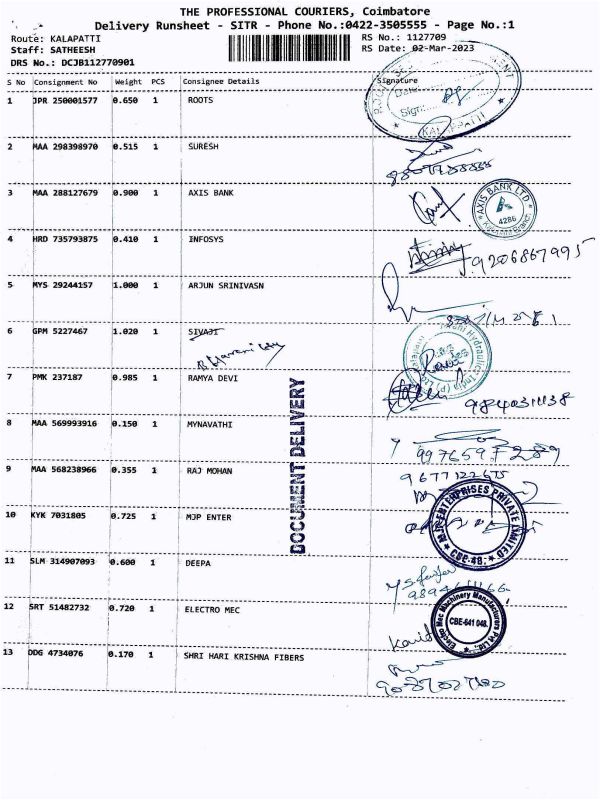 THE PROFESSIONAL COURIERS, Coimbatore
Delivery Runsheet - SITR - Phone No.:0422-3505555 - Page No.:1
Route: KALAPATTI RS No.: 1127709
Staff: SATHEESH RS Date: 02-Mar-2023
DRS No.: DCJB112770901
S No Consignment No Weight PCS Consignee Details Signature
1 JPR 250001577 0.650 1 ROOTS
Date:
Sign:
2 MAA 298398970 0.515 1 SURESH
3 MAA 288127679 0.900 1 AXIS BANK
AXIS BANK LTD.
4286
4 HRD 735793875 0.410 1 INFOSYS
9206867995
5 MYS 29244157 1.000 1 ARJUN SRINIVASN
6 GPM 5227467 1.020 1 SIVAJI
7 PMK 237187 0.985 1 RAMYA DEVI
DOCUMENT DELIVERY
8 MAA 569993916 0.150 1 MYNAVATHI
9 MAA 568238966 0.355 1 RAJ MOHAN
9677122675
10 KYK 7031805 0.725 1 MJP ENTER
MJP ENTERPRISES PRIVATE LIMITED
CBE-48.
11 SLM 314907093 0.600 1 DEEPA
12 SRT 51482732 0.720 1 ELECTRO MEC
Electro Mec Machinery Manufacturers Pvt Ltd.
CBE-641 048.
13 DDG 4734076 0.170 1 SHRI HARI KRISHNA FIBERS